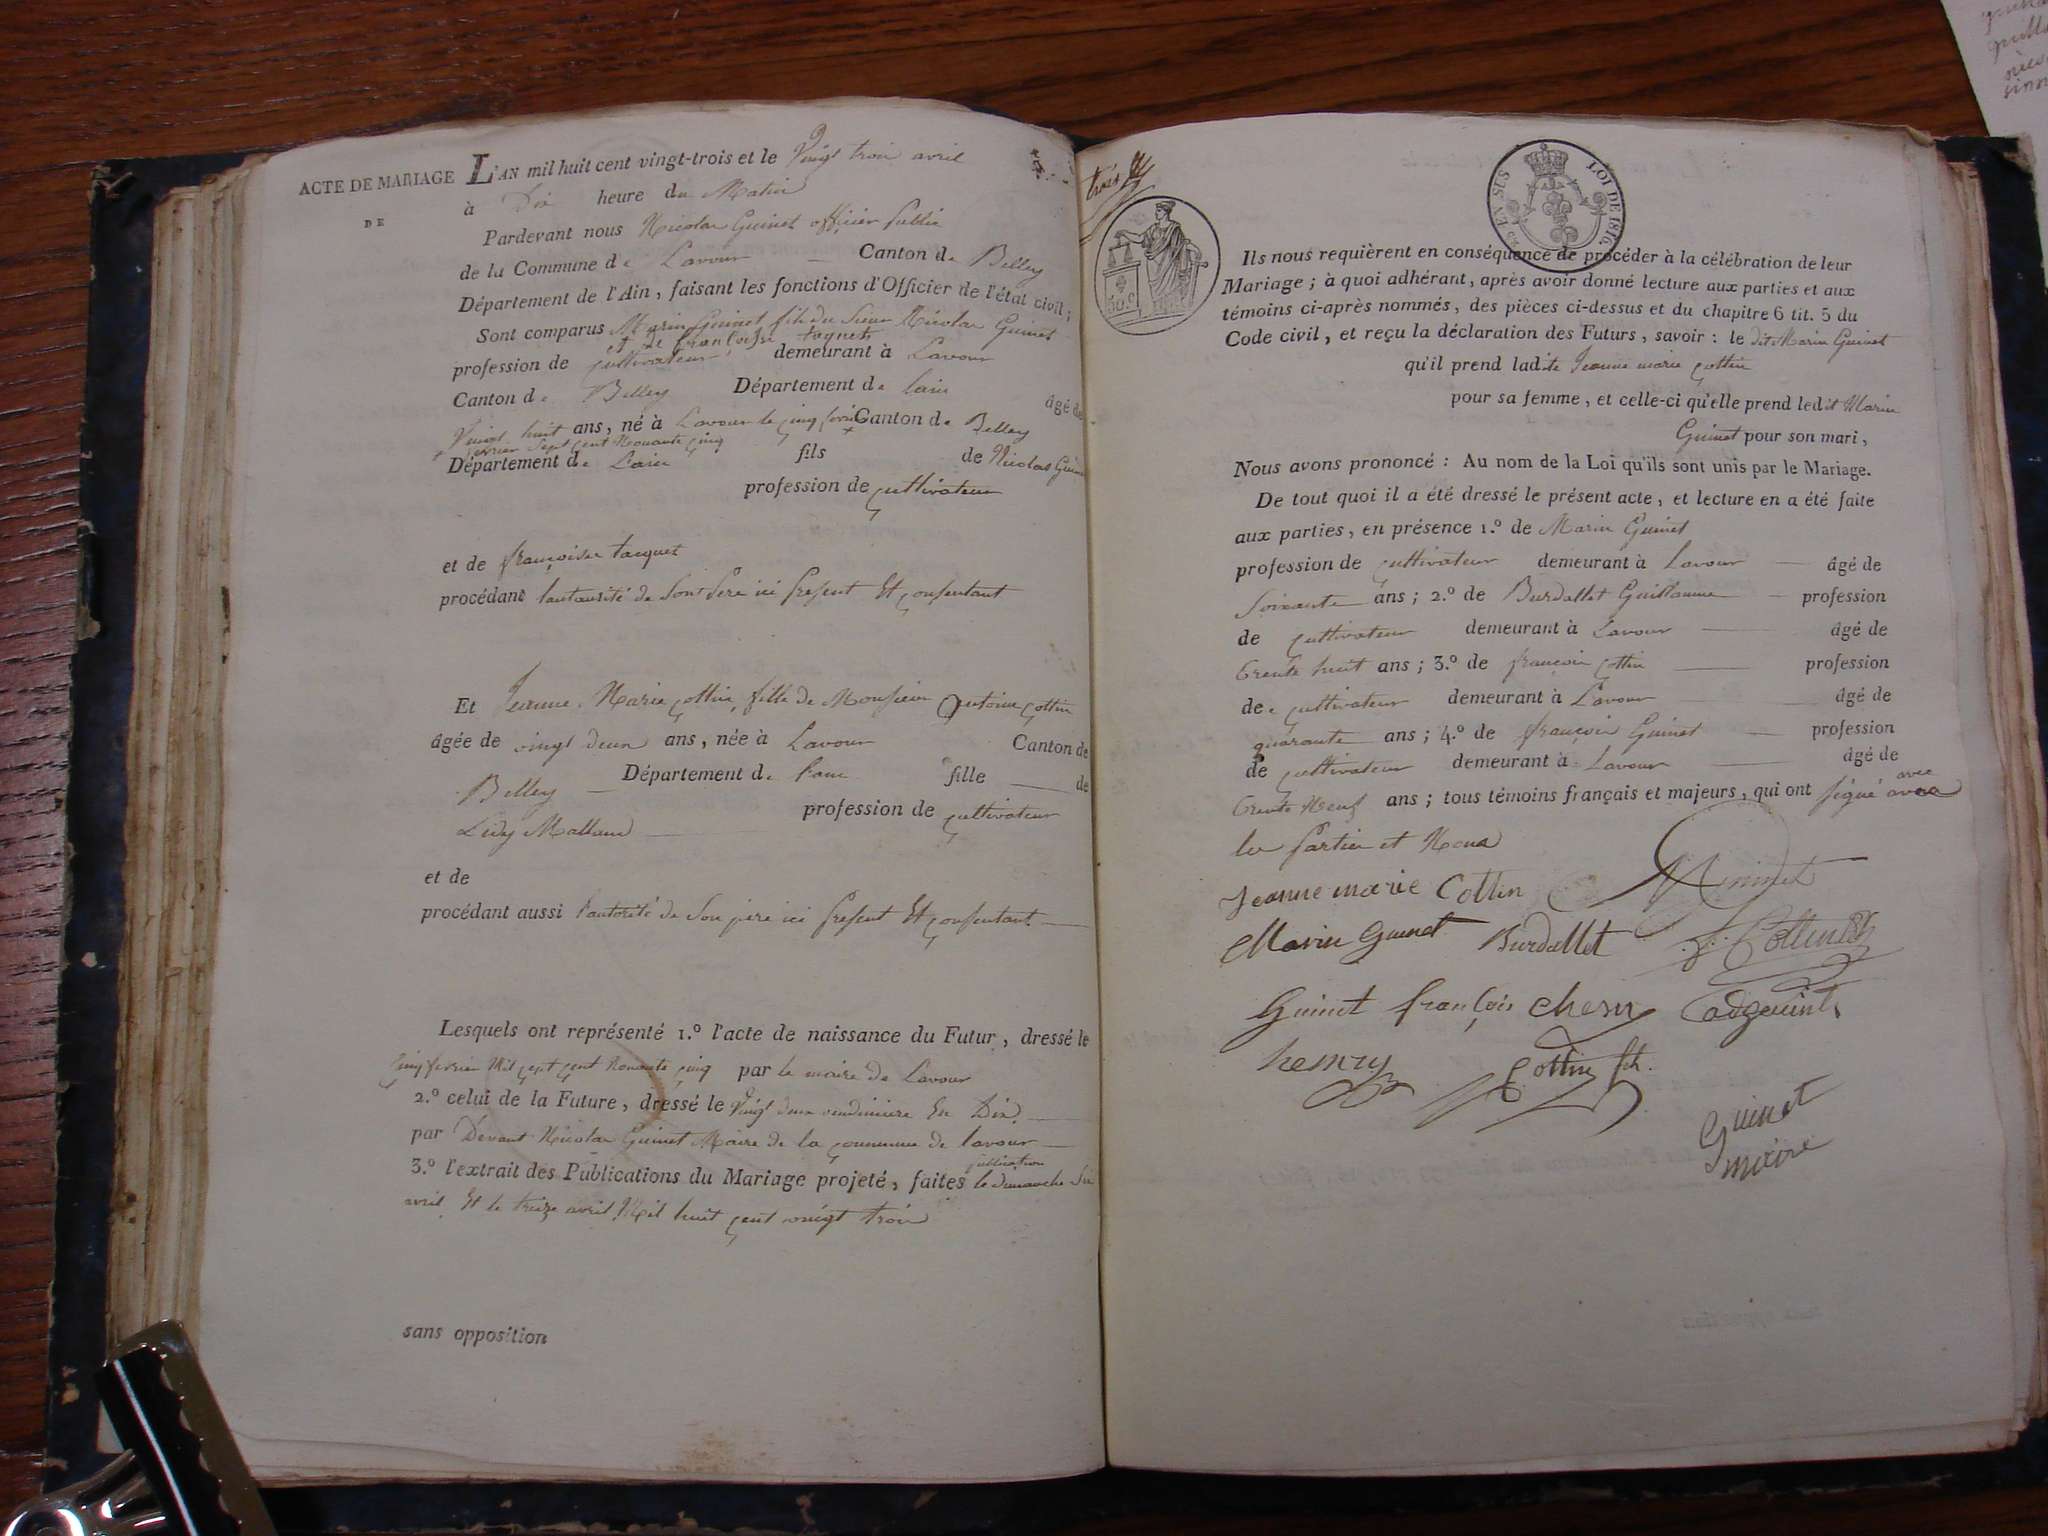 ACTE DE MARIAGE
DE
L'AN mil huit cent vingt-trois et le Vingt trois avril
à Dix heure du Matin
Pardevant nous Nicolas Guinet officier public
de la Commune de Lavour Canton de Belley
Département de l'Ain, faisant les fonctions d'Officier de l'état civil;
Sont comparus Marin Guinet fils du Sieur Nicolas Guinet
et de françoise taquet
profession de cultivateur demeurant à Lavour
Canton de Belley Département de lain âgé de
Vingt huit ans, né à Lavour le cinq Canton de Belley
fevrier Sept cent Nonante cinq
Département de Lain fils de Nicolas Guinet
profession de cultivateur
et de françoise tacquet
procédant lautaurité de Son Pere ici present Et consentant
Et Jeanne Marie cottin fille de Monsieur Antoine cottin
âgée de vingt deux ans, née à Lavour Canton de
Belley Département de lain fille de
profession de cultivateur
et de
procédant aussi lautorité de Son pere ici present Et consentant
Lesquels ont représenté 1.º l'acte de naissance du Futur, dressé le
Cinq fevrier Mil Sept cent Nonante cinq par le maire de Lavour
2.º celui de la Future, dressé le Vingt deux vendimiere En Dix
par Devant Nicolas Guinet Maire de la commune de lavour
publication
3.º l'extrait des Publications du Mariage projeté, faites le dimanche Six
avril Et le treize avril Mil huit cent vingt trois
sans opposition
trois
LOI DE 1816
50 C
Ils nous requièrent en conséquence de procéder à la célébration de leur
Mariage; à quoi adhérant, après avoir donné lecture aux parties et aux
témoins ci-après nommés, des pièces ci-dessus et du chapitre 6 tit. 5 du
Code civil, et reçu la déclaration des Futurs, savoir: le dit Marin Guinet
qu'il prend ladite Jeanne marie cottin
pour sa femme, et celle-ci qu'elle prend ledit Marin
Guinet pour son mari,
Nous avons prononcé: Au nom de la Loi qu'ils sont unis par le Mariage.
De tout quoi il a été dressé le présent acte, et lecture en a été faite
aux parties, en présence 1.º de Marin Guinet
profession de cultivateur demeurant à Lavour âgé de
Soixante ans; 2.º de Burdallet Guillaume profession
de cultivateur demeurant à Lavour âgé de
trente huit ans; 3.º de françois cottin profession
de cultivateur demeurant à Lavour âgé de
quarante ans; 4.º de françois Guinet profession
de cultivateur demeurant à Lavour âgé de
avec
trente Neuf ans; tous témoins français et majeurs, qui ont signé avec
les Parties et Nous
Jeanne marie Cottin
Marin Guinet Burdallet
Guinet françois chery
henry Cottin
Guinet
maire